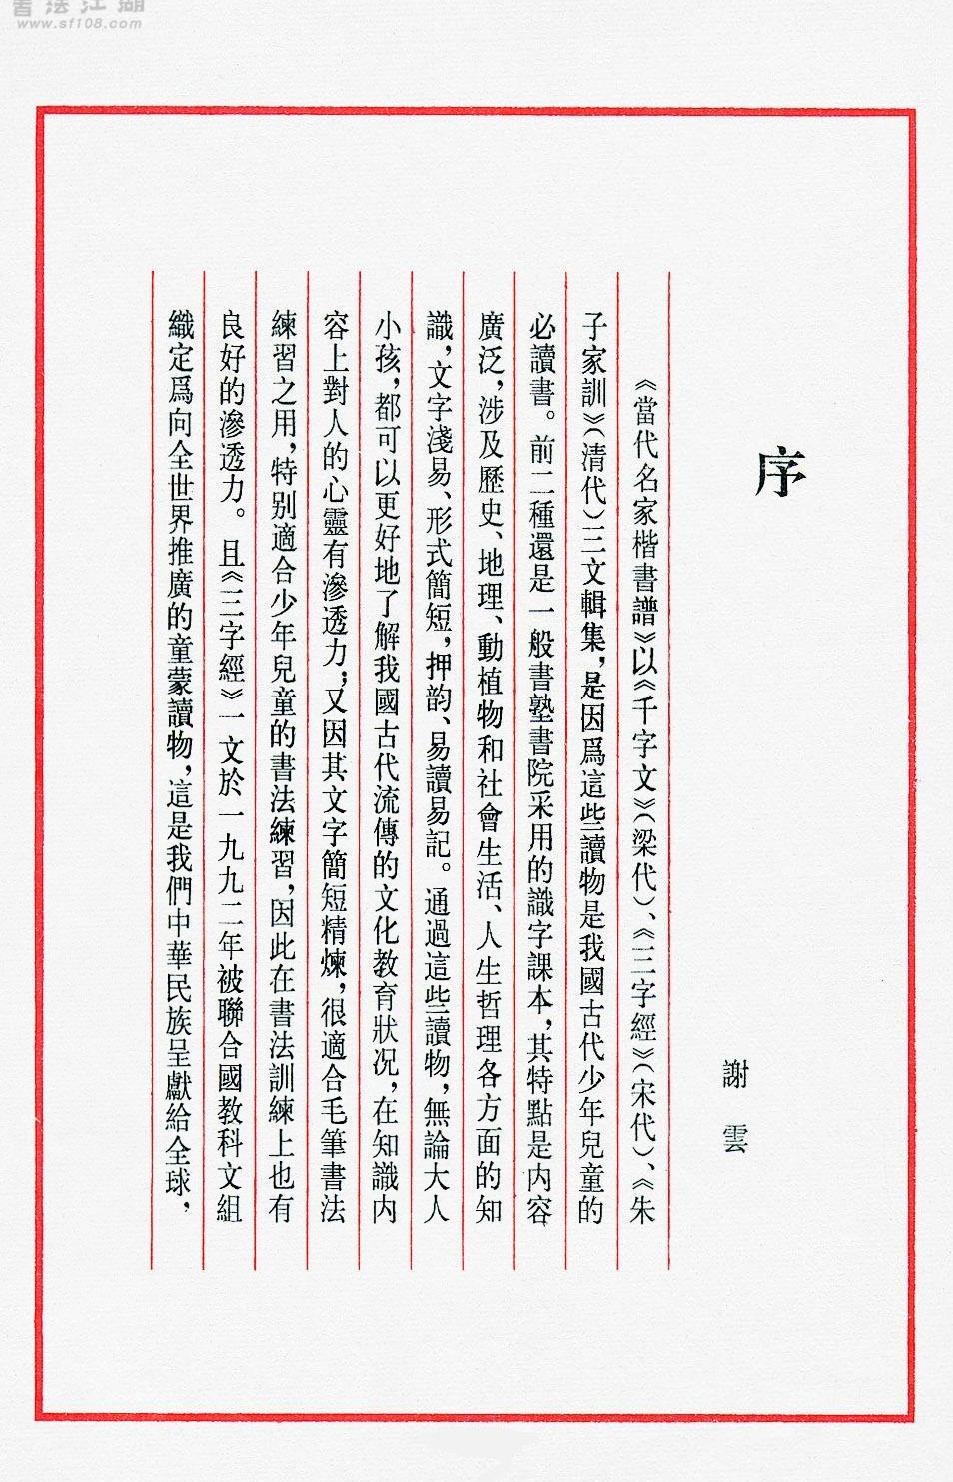 書法江湖
www.sf108.com
序
謝雲
《當代名家楷書譜》以《千字文》（梁代）、《三字經》（宋代）、《朱
子家訓》（清代）三文輯集，是因爲這些讀物是我國古代少年兒童的
必讀書。前二種還是一般書塾書院采用的識字課本，其特點是内容
廣泛，涉及歷史、地理、動植物和社會生活、人生哲理各方面的知
識，文字淺易、形式簡短，押韵、易讀易記。通過這些讀物，無論大人
小孩，都可以更好地了解我國古代流傳的文化教育狀况，在知識内
容上對人的心靈有滲透力；又因其文字簡短精煉，很適合毛筆書法
練習之用，特别適合少年兒童的書法練習，因此在書法訓練上也有
良好的滲透力。且《三字經》一文於一九九二年被聯合國教科文組
織定爲向全世界推廣的童蒙讀物，這是我們中華民族呈獻給全球，